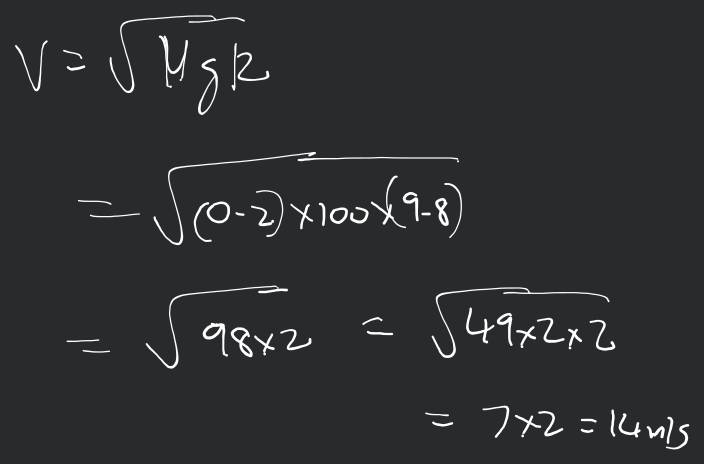 V = √μgR
= √(0-2)×100×(9-8)
= √98×2 = √49×2×2
= 7×2 = 14m/s